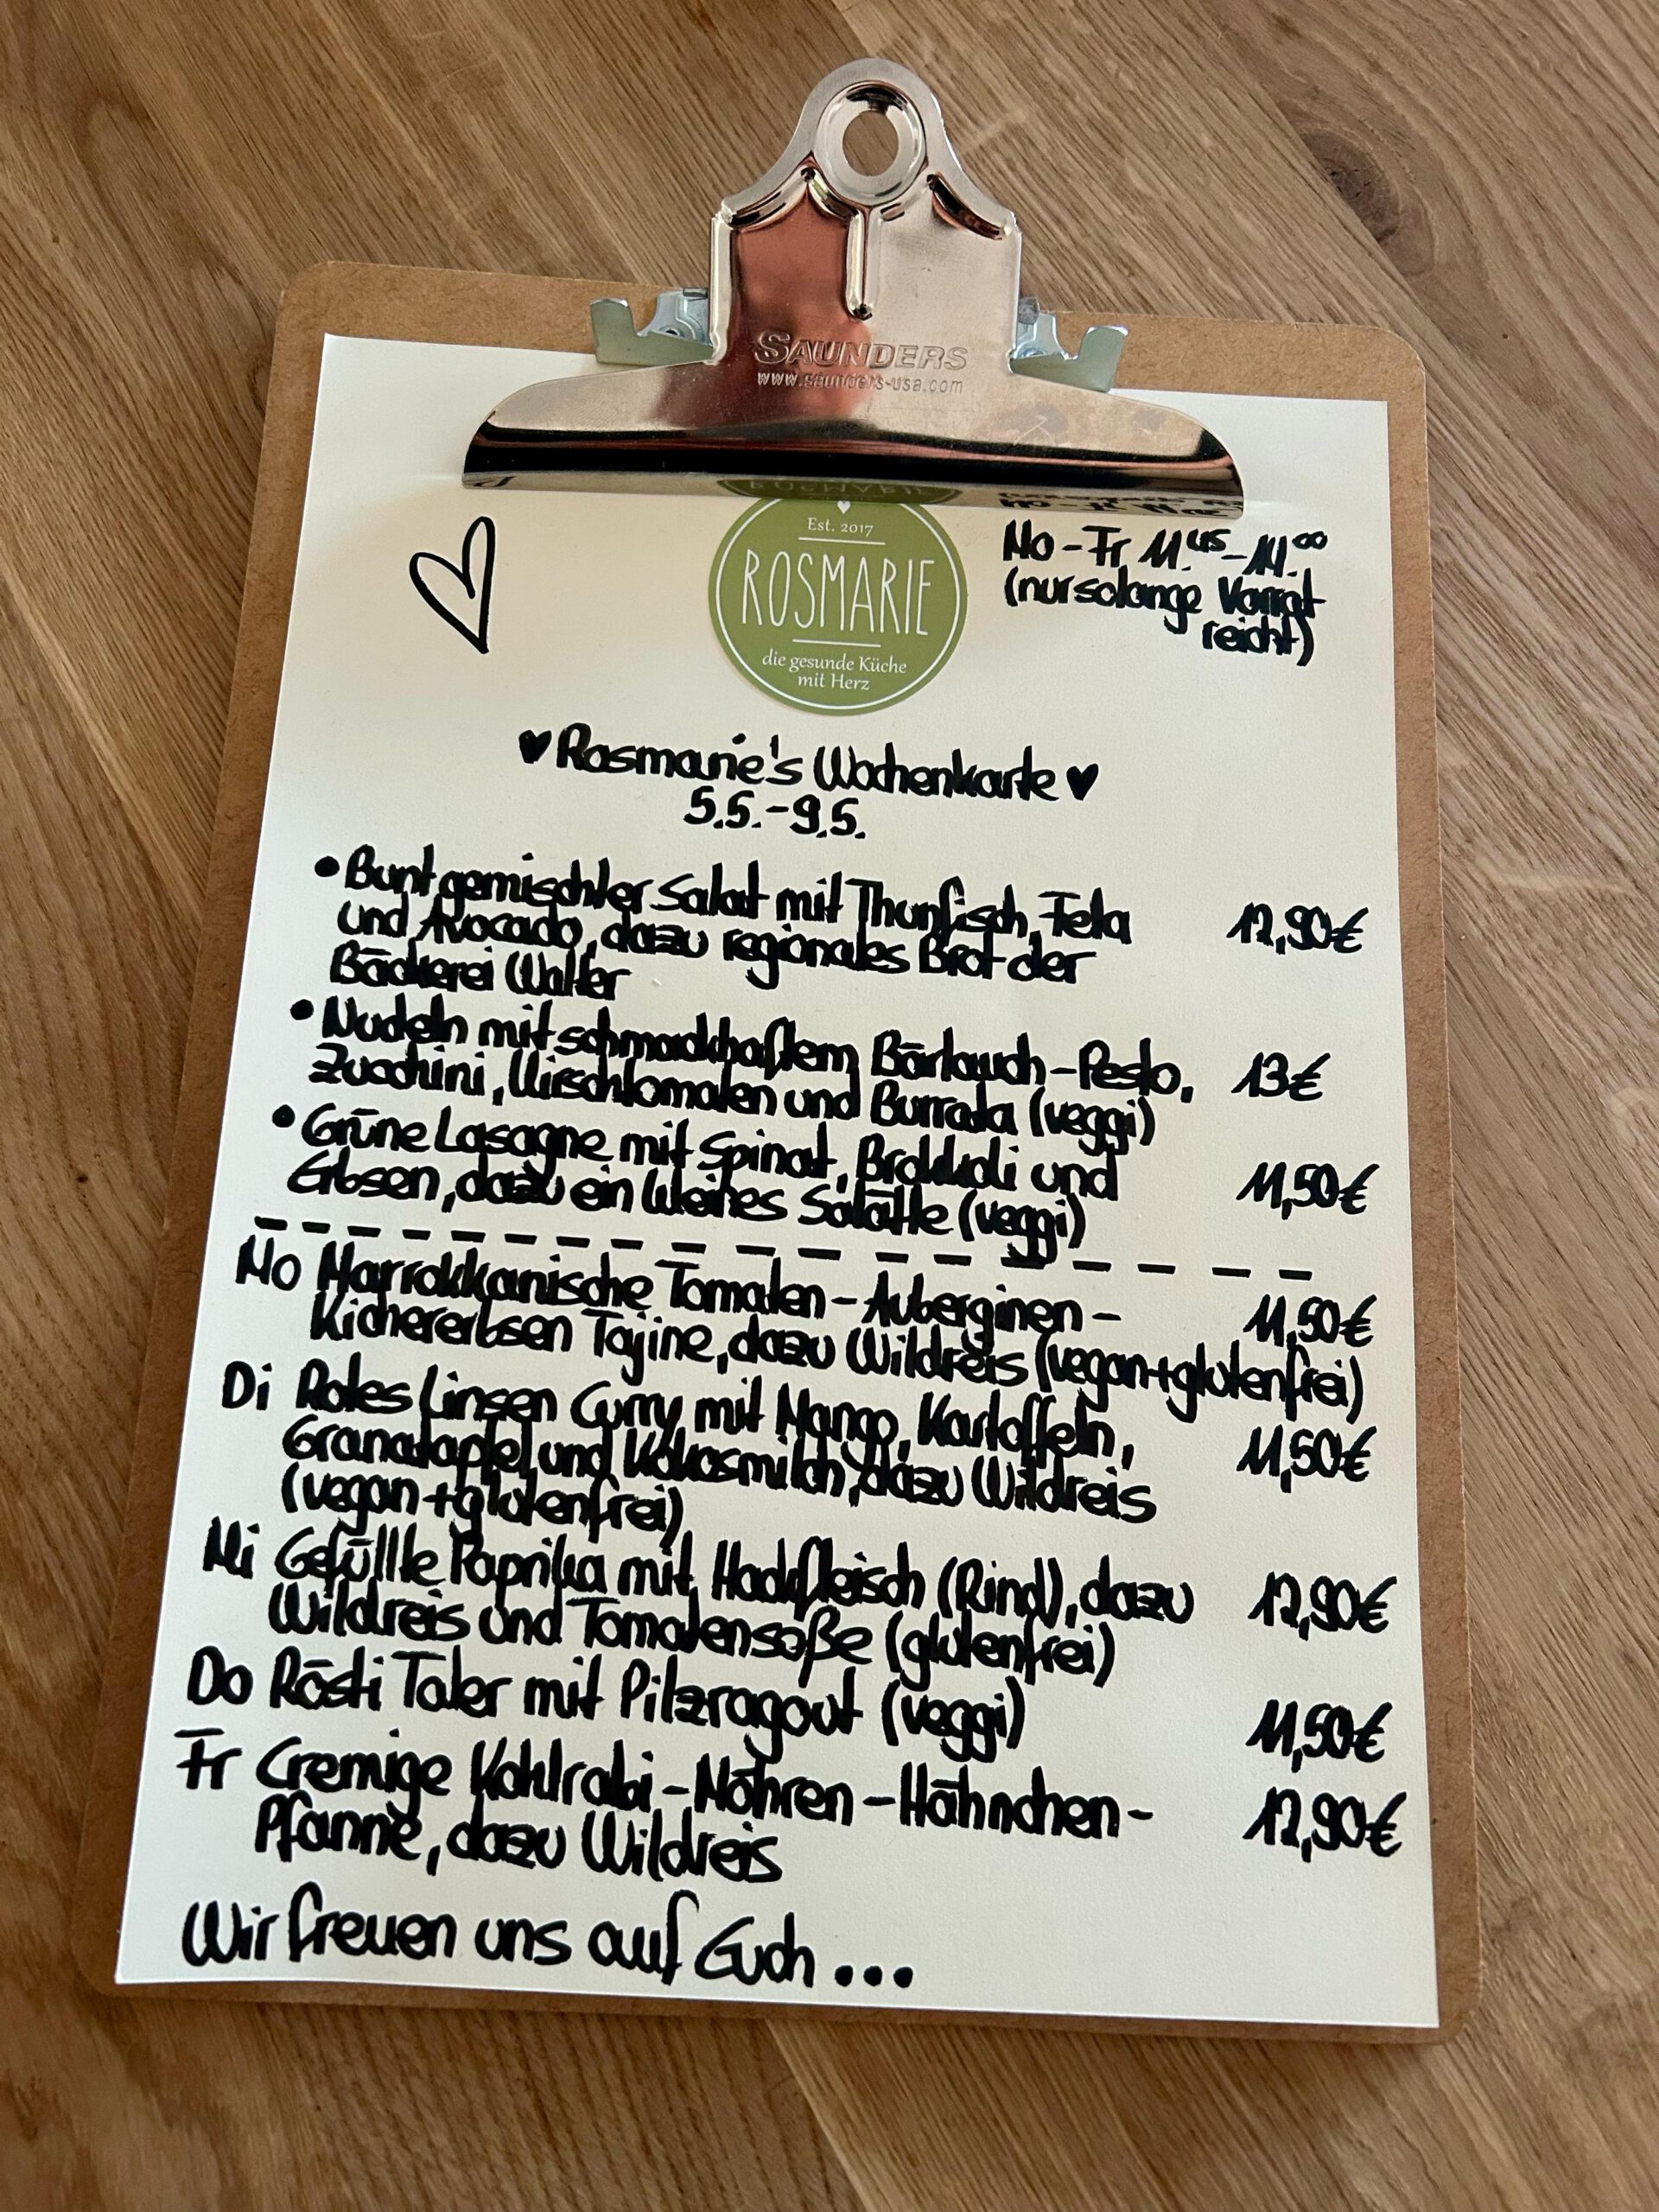 SAUNDERS
www.saunders-usa.com
Est. 2017
ROSMARIE
die gesunde Küche
mit Herz
Mo-Fr 11.45-14.00
(nur solange Vorrat
reicht)
♥ Rosmarie's Wochenkarte ♥
5.5.-9.5.
• Bunt gemischter Salat mit Thunfisch, Feta 12,90€
und Avocado, dazu regionales Brot der
Bäckerei Walter
• Nudeln mit schmackhaftem Bärlauch-Pesto, 13€
Zucchini, Kirschtomaten und Burrata (veggi)
• Grüne Lasagne mit Spinat, Brokkoli und 11,50€
Erbsen, dazu ein kleines Salätle (veggi)
Mo Marrokkanische Tomaten-Auberginen- 11,50€
Kichererbsen Tajine, dazu Wildreis (vegan+glutenfrei)
Di Rotes Linsen Curry mit Mango, Kartoffeln, 11,50€
Granatapfel und Kokosmilch, dazu Wildreis
(vegan+glutenfrei)
Mi Gefüllte Paprika mit Hackfleisch (Rind), dazu 12,90€
Wildreis und Tomatensoße (glutenfrei)
Do Rösti Taler mit Pilzragout (veggi) 11,50€
Fr Cremige Kohlrabi-Möhren-Hähnchen- 12,90€
Pfanne, dazu Wildreis
Wir freuen uns auf Euch...